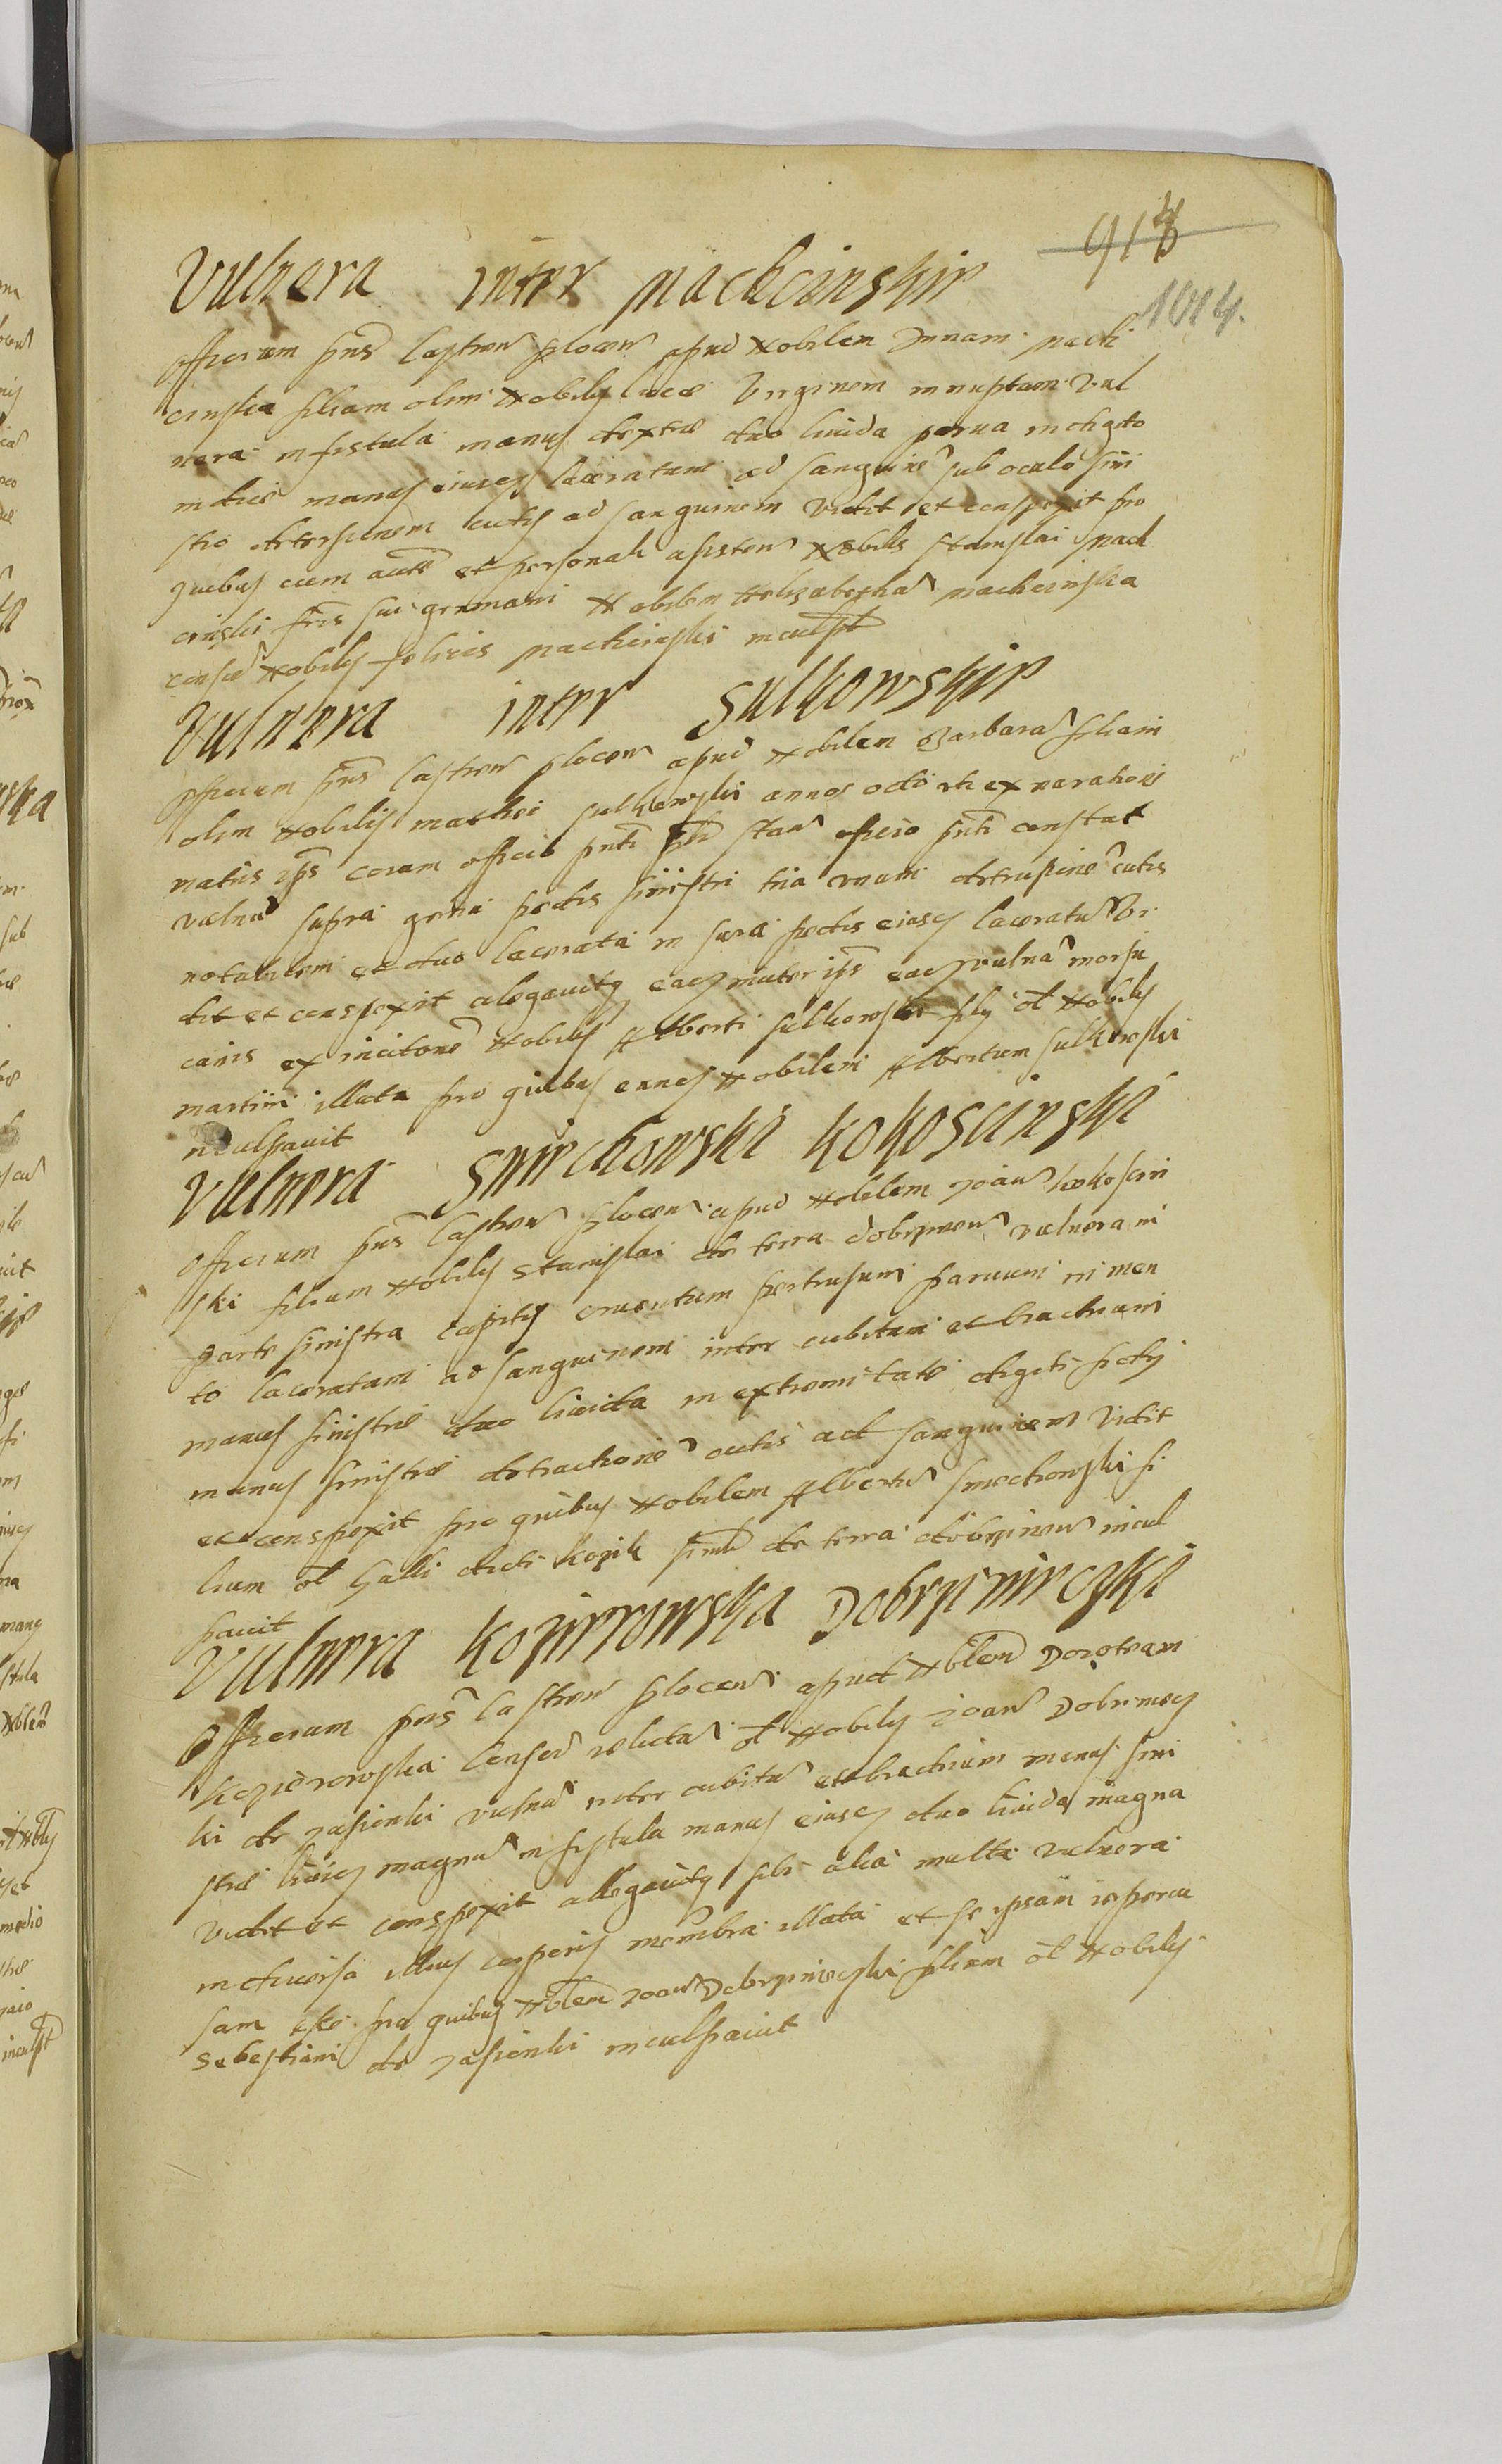 918
1014.
Vulnera inter Machcinskie
Officium pns Castren Plocen apud Nobilem Annam Mach
cinska filiam olim Nobilis Lucae Virginem innuptam Vul
nera in fistula manus dextrae duo livida parva in digito
indice manus eiusq laceratum ad sanguine sub oculo sini
stro detersionem cutis ad sanguinem vidit et conspexit pro
quibus cum aucte et personali assisten Nobilis Stanislai Mach
cinski fris sui germani Nobilem Helizabetha Machcinska
Consor Nobilis Felicis Machcinski inculpt
Vulnera inter Sulkowskie
Officium pns Castren Plocen apud Nobilem Barbara filiam
olim Nobilis Mathei Sulkowski annos octo ut ex narationi
matris ips coram officio pnti stan officio pnti constat
vulnus supra genu pedis sinistri tria unum detrusione cutis
notabilem et duo lacerata in sura pedis eiusq laceratu Vi
dit et conspexit alegavitq eaq mater ips eaq vulna morsu
canis ex incitone Nobilis Alberti Sulkowski filij ol Nobilis
Martini illata pro quibus eunq Nobilem Albertum Sulkowski
inculpavit
Vulnera Smiechowski Kokoscinski
Officium pns Castren Plocen apud Nobilem Joan Kokoscin
ski filium Nobilis Stanislai de terra Dobrzynen vulnera in
parte sinistra capitis cruentum pertusum parvum in men
to laceratam ad sanguinem inter cubitum et brachium
manus sinistrae duo livida in extremitate digiti
manus sinistrae detractione cutis ad sanguinem Vidit
et conspexit pro quibus Nobilem Albertu Smiechowski fi
lium ol Galli dicti Kozik de terra Dobrzinen incul
pavit
Vulnera Kozierowska Dobrzinieczki
Officium pns Castren Plocen apud Nblem Doroteam
Kozierowska Consor relicta ol Nobilis Joan Dobrniecz
ki de Jasionki vulnus inter cubitu et brachium manus sini
strae magnu in fistula manus eiusq duo livida magna
vidit et conspexit allegavitq sibi alia multa vulnera
in diversa illius corporis membra illata et se ipsam repercu
sam esse pro quibus Nblem Joan Dobrzinieczki filium ol Nobilis
Sebestiani de Jasionki inculpavit